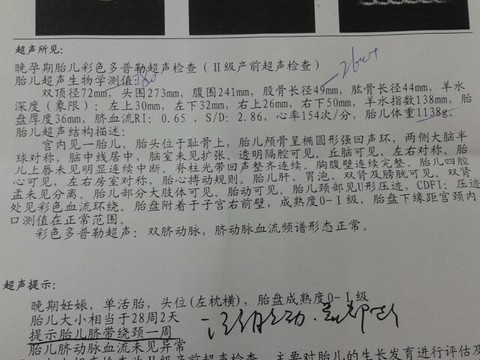 超声所见:
晚孕期胎儿彩色多普勒超声检查(Ⅱ级产前超声检查)
胎儿超声生物学测值:
双顶径72mm, 头围273mm, 腹围241mm, 股骨长径49mm, 肱骨长径44mm, 羊水
深度(象限): 左上30mm, 左下32mm, 右上26mm, 右下50mm, 羊水指数138mm, 胎
盘厚度36mm, 脐血流RI: 0.65 , S/D: 2.86, 心率154次/分, 胎儿体重1138g.
胎儿超声结构描述:
宫内见一胎儿, 胎头位于耻骨上, 胎儿颅骨呈椭圆形强回声环, 两侧大脑半
球对称, 脑中线居中, 脑室未见扩张。透明隔腔可见。丘脑可见, 左右对称。胎
儿上唇未见明显连续中断。脊柱光带回声整齐连续。胸腹壁连续完整。胎儿四腔
心可见, 左右房室对称, 胎心搏动规则。胎儿肝、胃泡、双肾及膀胱可见, 双肾
盂未见分离。胎儿部分大肢体可见。胎动可见。胎儿颈部见U形压迹, CDFI: 压迹
处见彩色血流环绕。胎盘附着于子宫右前壁, 成熟度0-Ⅰ级, 胎盘下缘距宫颈内
口测值在正常范围。
彩色多普勒超声: 双脐动脉, 脐动脉血流频谱形态正常。
超声提示:
晚期妊娠, 单活胎, 头位(左枕横), 胎盘成熟度0-Ⅰ级
胎儿大小相当于28周2天
提示胎儿脐带绕颈一周
胎儿脐动脉血流未见异常
主要对胎儿的生长发育进行评估及